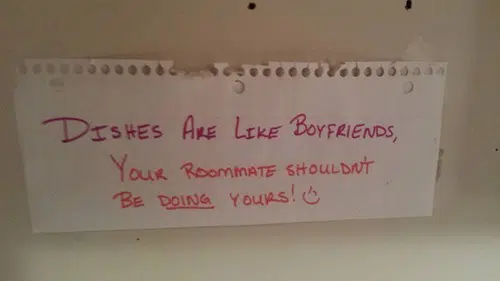 DISHES ARE LIKE BOYFRIENDS,
YOUR ROOMMATE SHOULDN'T
BE DOING YOURS! ☺